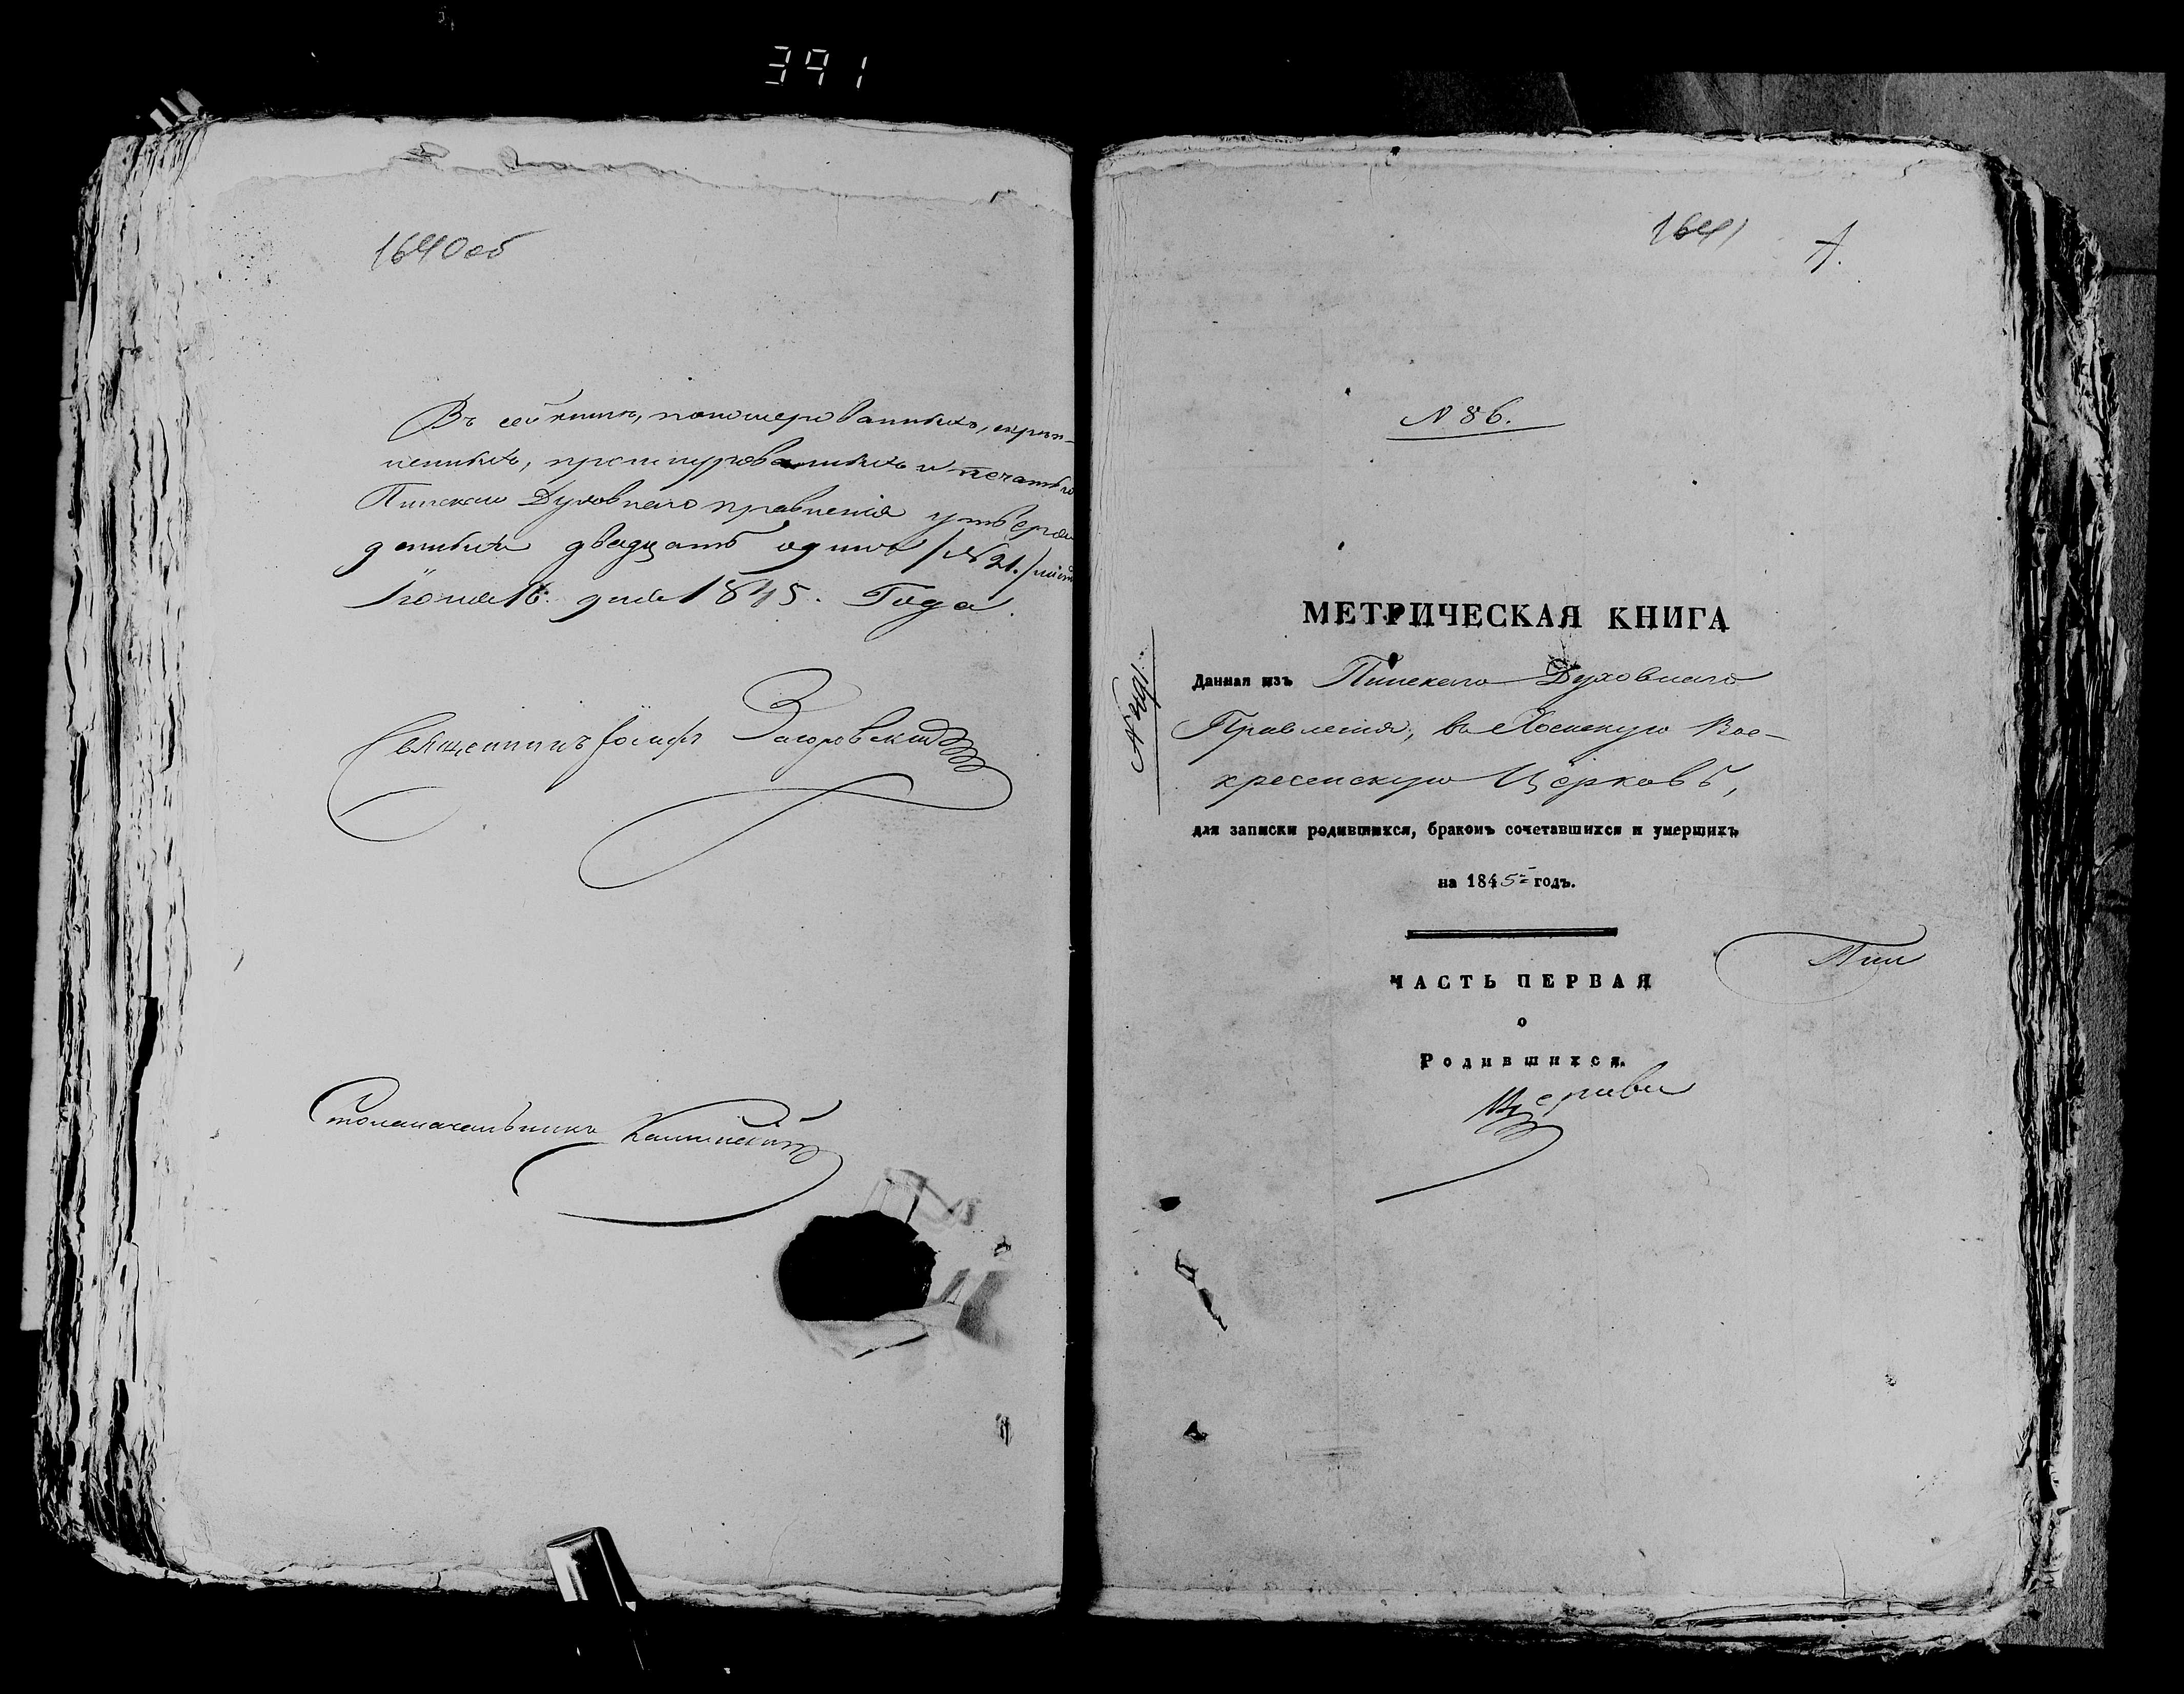 391
1640об
Въ сей книгѣ, пономерованныхъ, скрѣп-
ленныхъ, прошнурованныхъ и печатью
Пинскаго Духовнаго правленія утверж-
денныхъ двадцать одинъ /№ 21./ листъ
Іюня 16. дня 1845. Года.
Священникъ Іосифъ Загоровскій
Столоначальникъ
1641
А.
N 86.
МЕТРИЧЕСКАЯ КНИГА
Данная изъ Пинскаго Духовнаго
Правленія, въ Хоенскую Вос-
кресенскую Церковь,
для записки родившихся, бракомъ сочетавшихся и умершихъ
на 1845 годъ.
Пин
ЧАСТЬ ПЕРВАЯ
о
Родившихся.